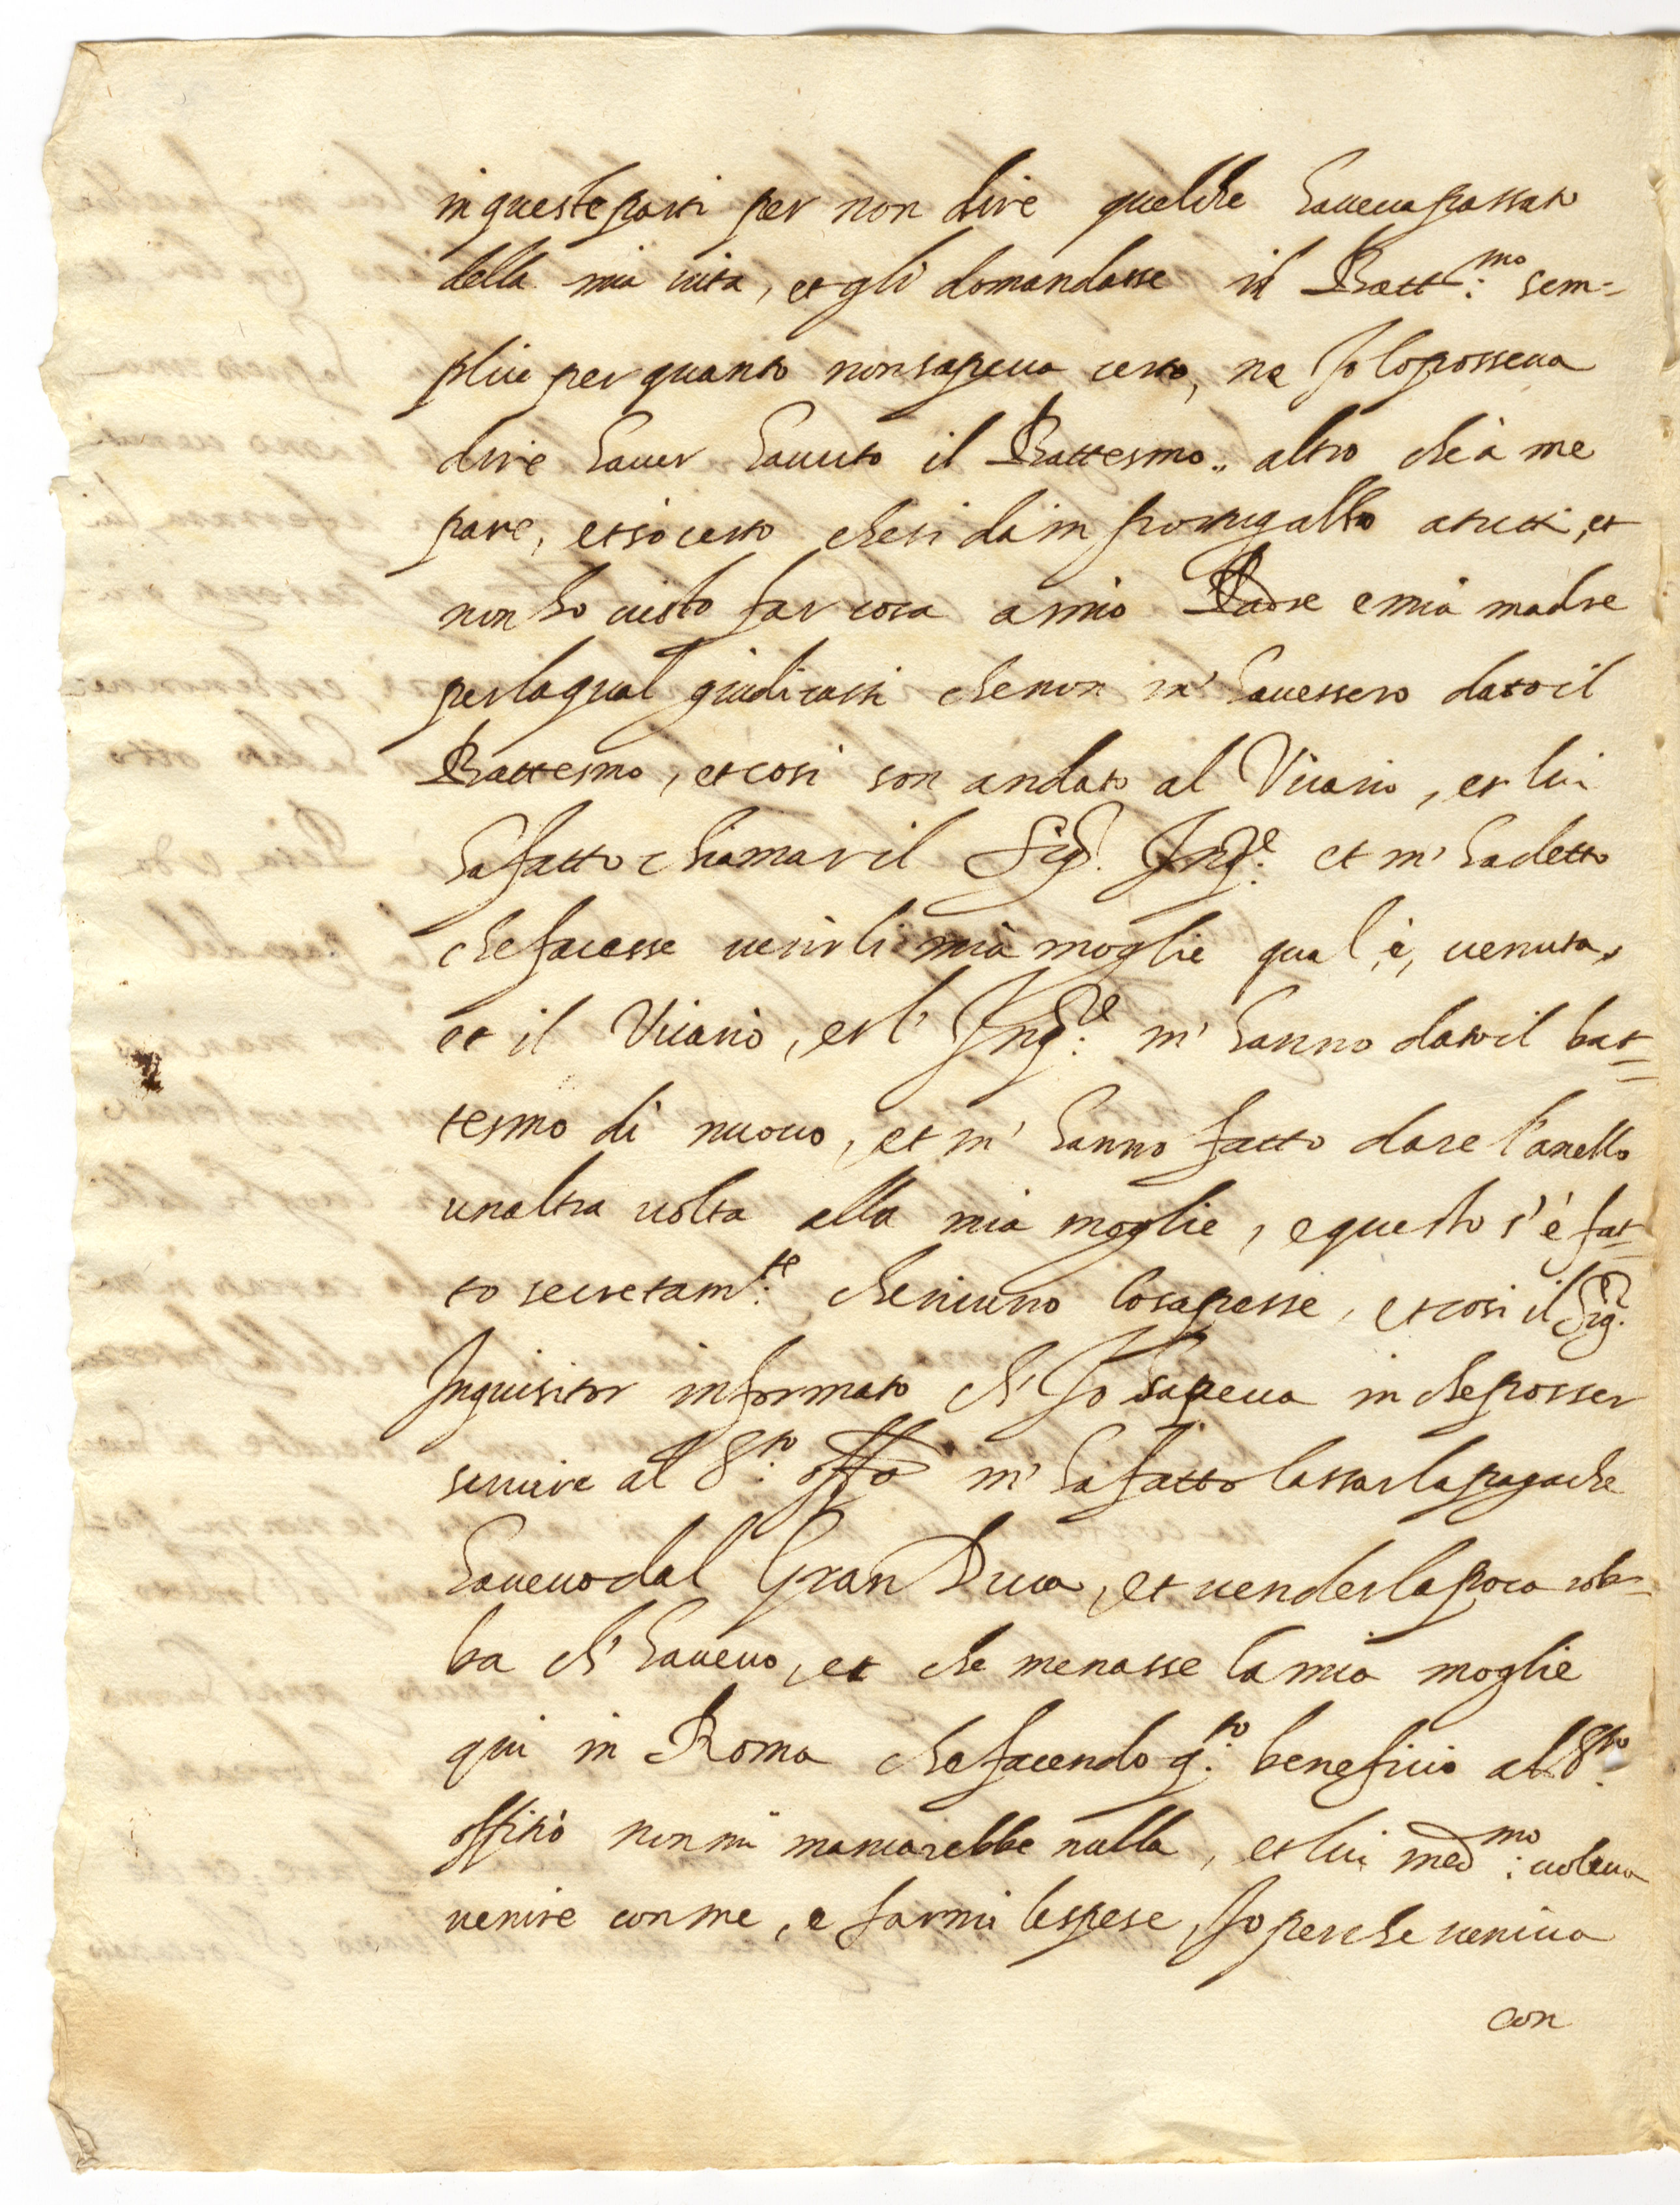 in queste parti per non dire quelche haueua passato
della mia uita, et gli domandasse il Batt.mo: sem=
plice per quanto non sapeua certo, ne Jo lo posseua
dire hauer hauuto il Battesmo,, altro che à me
pare, et sò certo che si da in portugallo a tutti, et
non ho uisto far cosa a mio Padre e mia madre
per la qual giudicassi che non m' hauessero dato il
Battesmo, et cosi son andato al Vicario, et lui
ha fatto chiamar il Sig.r Inq.e: et m' ha detto
che facesse uenirli mia moglie qual è, uenuta,
et il Vicario, et l' Inq.re: m' hanno dato il bat=
tesmo di nuouo, et m' hanno fatto dare l'anello
unaltra uolta alla mia moglie, e questo s' è fat=
to secretam.te: che niuno lo sapesse, et cosi il Sig.r
Inquisitor informato ch' Jo sapeua in che posser
seruire al S.to: offo m' ha fatto lassar la paga che
haueuo dal Gran Duca, et uender la poca rob=
ba ch' haueuo, et che menasse la mia moglie
qui in Roma che facendo q.to: beneficio al S.to:
offitiò non mi mancarebbe nulla, et lui med.mo: uoleua
uenire con me, e farmi le spese, Jo perche ueniua
con